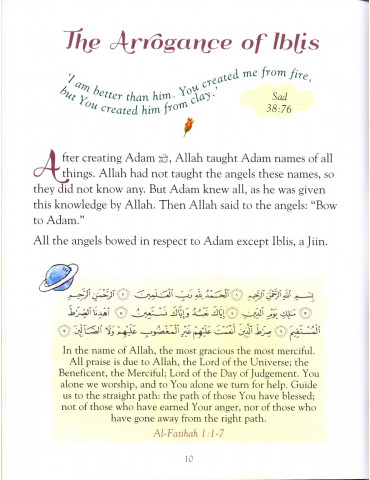 The Arrogance of Iblis
'I am better than him. You created me from fire,
but You created him from clay.'
Sad
38:76
After creating Adam ﷺ, Allah taught Adam names of all
things. Allah had not taught the angels these names, so
they did not know any. But Adam knew all, as he was given
this knowledge by Allah. Then Allah said to the angels: “Bow
to Adam.”
All the angels bowed in respect to Adam except Iblis, a Jiin.
بِسْمِ اللَّهِ الرَّحْمَٰنِ الرَّحِيمِ ١ الْحَمْدُ لِلَّهِ رَبِّ الْعَالَمِينَ ٢ الرَّحْمَٰنِ الرَّحِيمِ
٣ مَالِكِ يَوْمِ الدِّينِ ٤ إِيَّاكَ نَعْبُدُ وَإِيَّاكَ نَسْتَعِينُ ٥ اهْدِنَا الصِّرَاطَ
الْمُسْتَقِيمَ ٦ صِرَاطَ الَّذِينَ أَنْعَمْتَ عَلَيْهِمْ غَيْرِ الْمَغْضُوبِ عَلَيْهِمْ وَلَا الضَّالِّينَ ٧
In the name of Allah, the most gracious the most merciful.
All praise is due to Allah, the Lord of the Universe; the
Beneficent, the Merciful; Lord of the Day of Judgement. You
alone we worship, and to You alone we turn for help. Guide
us to the straight path: the path of those You have blessed;
not of those who have earned Your anger, nor of those who
have gone away from the right path.
Al-Fatihah 1:1-7
10